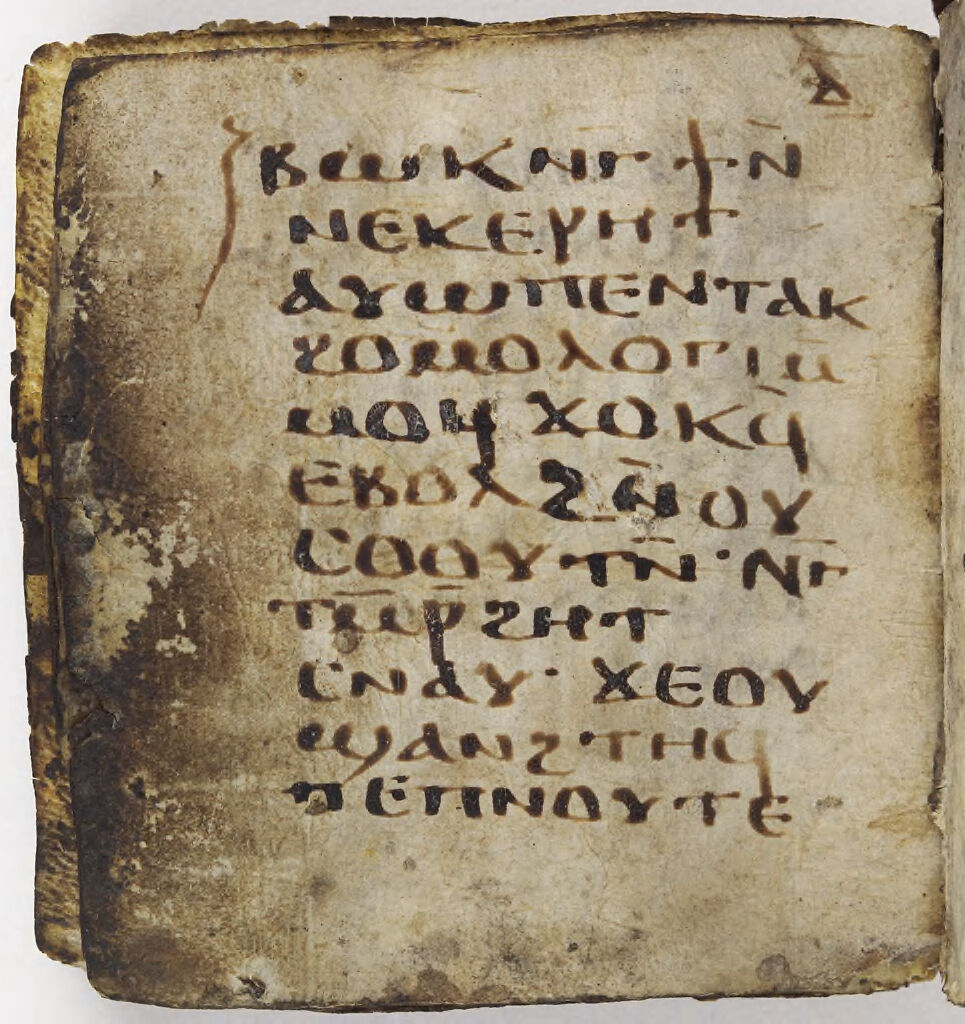 ⲇ
ⲃⲱⲕ ⲛⲅϯ ⲛ̄
ⲛⲉⲕⲉⲣⲏⲧ
ⲁⲩⲱ ⲡⲉⲛⲧⲁⲕ
ϩⲟⲙⲟⲗⲟⲅⲓ ⲙ̄
ⲙⲟϥ ϫⲟⲕϥ̄
ⲉⲃⲟⲗ ϩⲛ̄ ⲟⲩ
ⲥⲟⲟⲩⲧⲛ̄· ⲛⲅ̄
ⲧⲙ̄ⲣ̄ϩⲏⲧ
ⲥⲛⲁⲩ· ϫⲉ ⲟⲩ
ϣⲁⲛϩⲧⲏϥ
ⲡⲉ ⲡⲛⲟⲩⲧⲉ